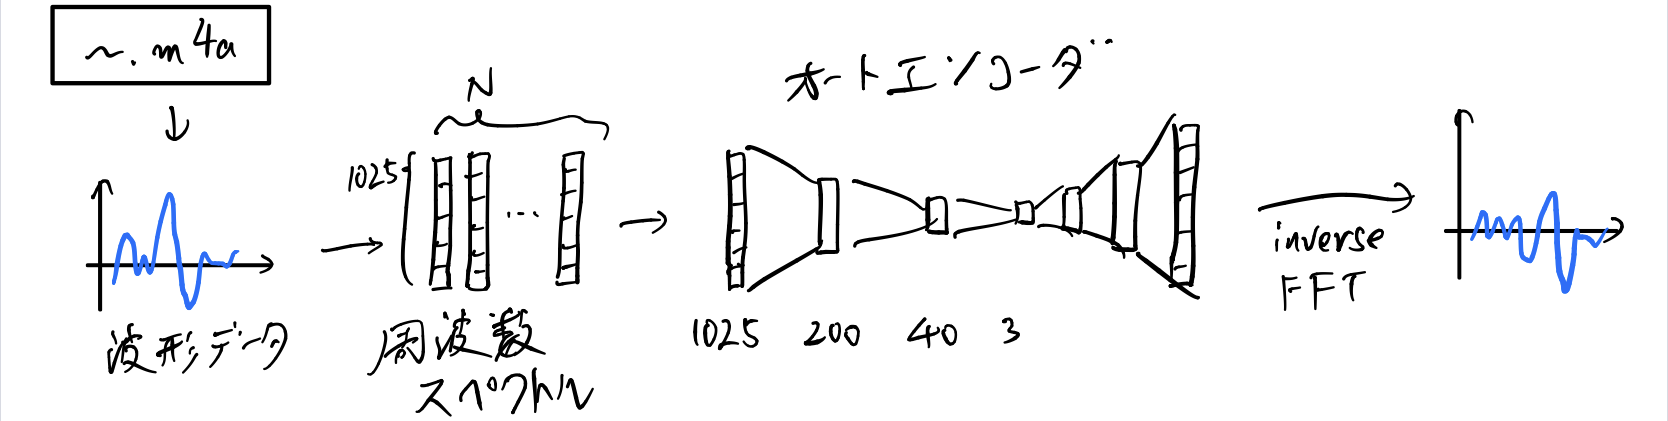 ~.m4a
波形データ
N
1025
周波数
スペクトル
オートエンコーダ
1025 200 40 3
inverse
FFT